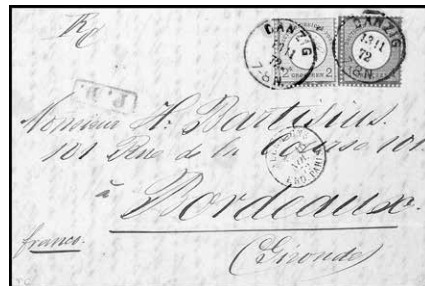 DANZIG
13 11
72
7-8 N.
DANZIG
13 11
72
7-8 N.
2 GROSCHEN 2
P. D.
Monsieur H. Bartisius.
101 Rue de la Course 101
à
Bordeaux.
franco.
(Gironde)